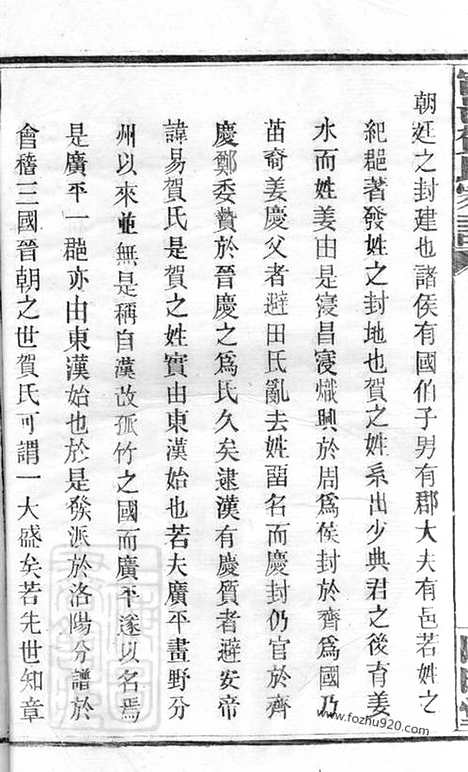 朝廷之封建也諸侯有國伯子男有郡大夫有邑若姓之
紀郡著發姓之封地也賀之姓系出少典君之後育姜
水而姓姜由是寖昌寖熾興於周為侯封於齊為國乃
苗裔姜慶父者避田氏亂去姓畱名而慶封仍官於齊
慶鄭委贄於晉慶之為氏久矣逮漢有慶質者避安帝
諱易賀氏是賀之姓實由東漢始也若夫廣平畫野分
州以來並無是稱自漢改孤竹之國而廣平遂以名焉
是廣平一郡亦由東漢始也於是發派於洛陽分譜於
會稽三國晉朝之世賀氏可謂一大盛矣若先世知章
www.fozhu920.com